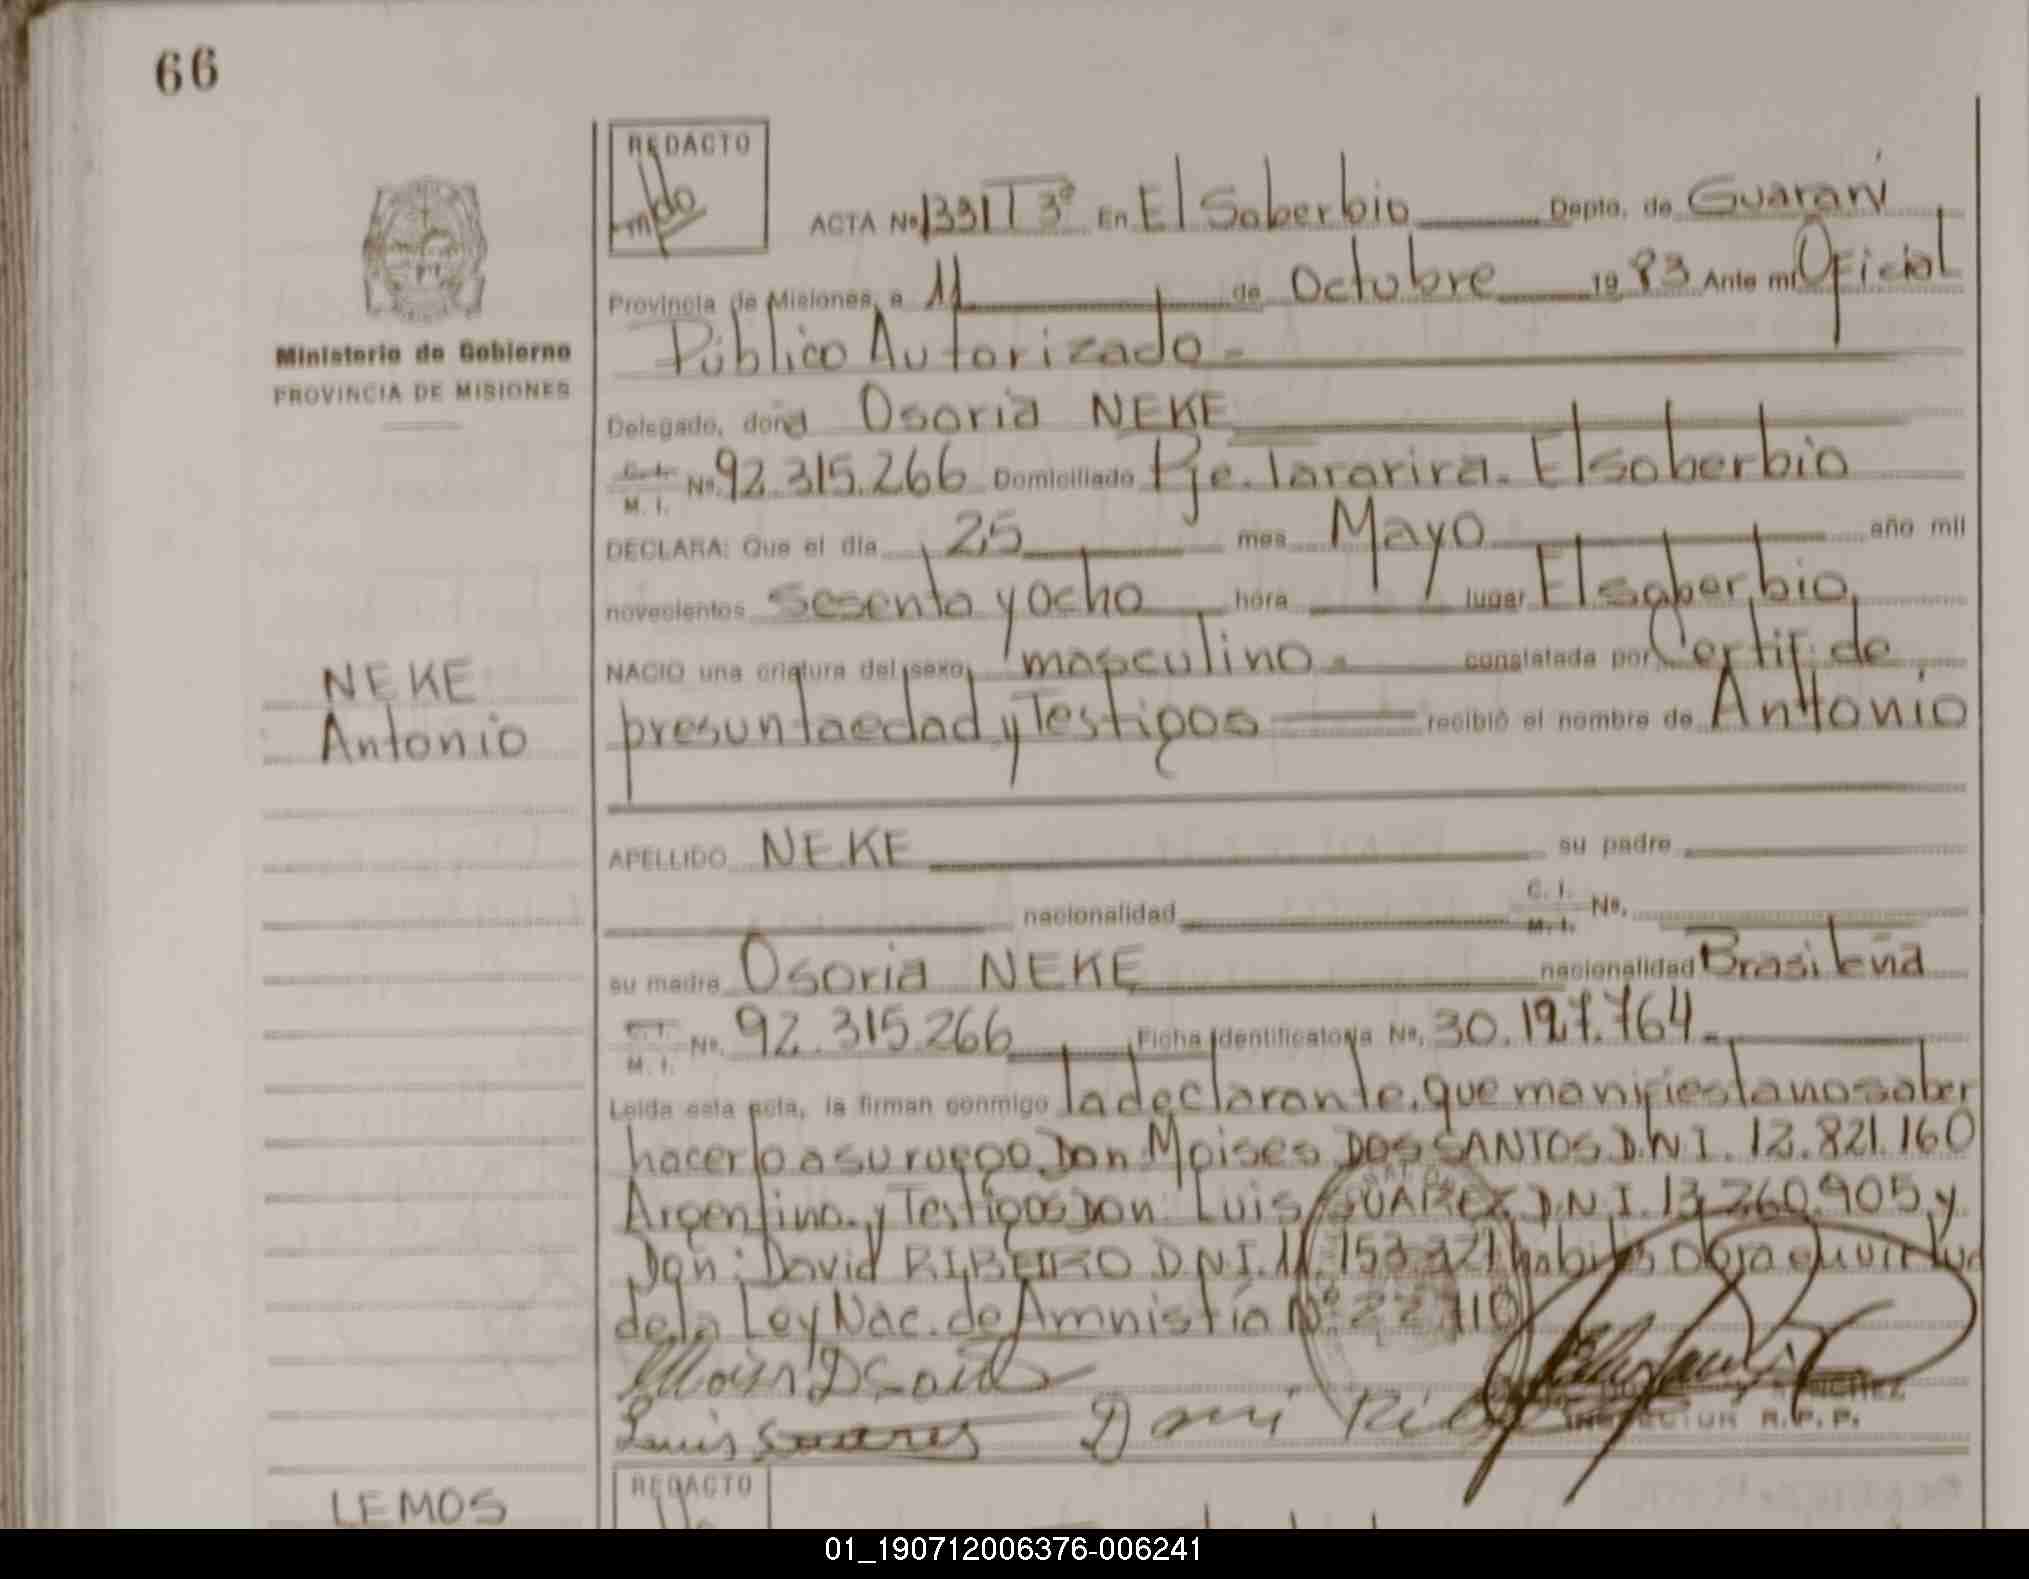 66
REDACTO
ACTA Nº 1331 T 3º En El Soberbio Depto. de Guaraní
Provincia de Misiones, a 11 de Octubre 1983 Ante mí Oficial
Público Autorizado-
Ministerio de Gobierno
PROVINCIA DE MISIONES
Delegado, doña Osoria NEKE
C. I. M. I. Nº 92.315.266 Domiciliado Pje. Tararira. El soberbio
DECLARA: Que el día 25 mes Mayo año mil
novecientos sesenta y ocho hora lugar El soberbio
NEKE
Antonio
NACIO una criatura del sexo masculino - constatada por Certif. de
presunta edad y Testigos recibió el nombre de Antonio
APELLIDO NEKE su padre
nacionalidad C. I. M. I. Nº.
su madre Osoria NEKE nacionalidad Brasileña
C. I. M. I. Nº. 92.315.266 Ficha Identificatoria Nº. 30.127.764-
Leída esta acta, la firman conmigo la declarante, que manifiesta no saber
hacerlo a su ruego Don Moises DOS SANTOS D.N.I. 12.821.160
Argentino. y Testigos Don: Luis SUAREZ D.N.I. 13.260.905 y
Don: David RIBEIRO D.N.I. 11.153.321 habiles obra en virtud
de la Ley Nac. de Amnistía Nº 22.710
Luis Suares
INSPECTOR R.P.P.
LEMOS
REDACTO
01_190712006376-006241